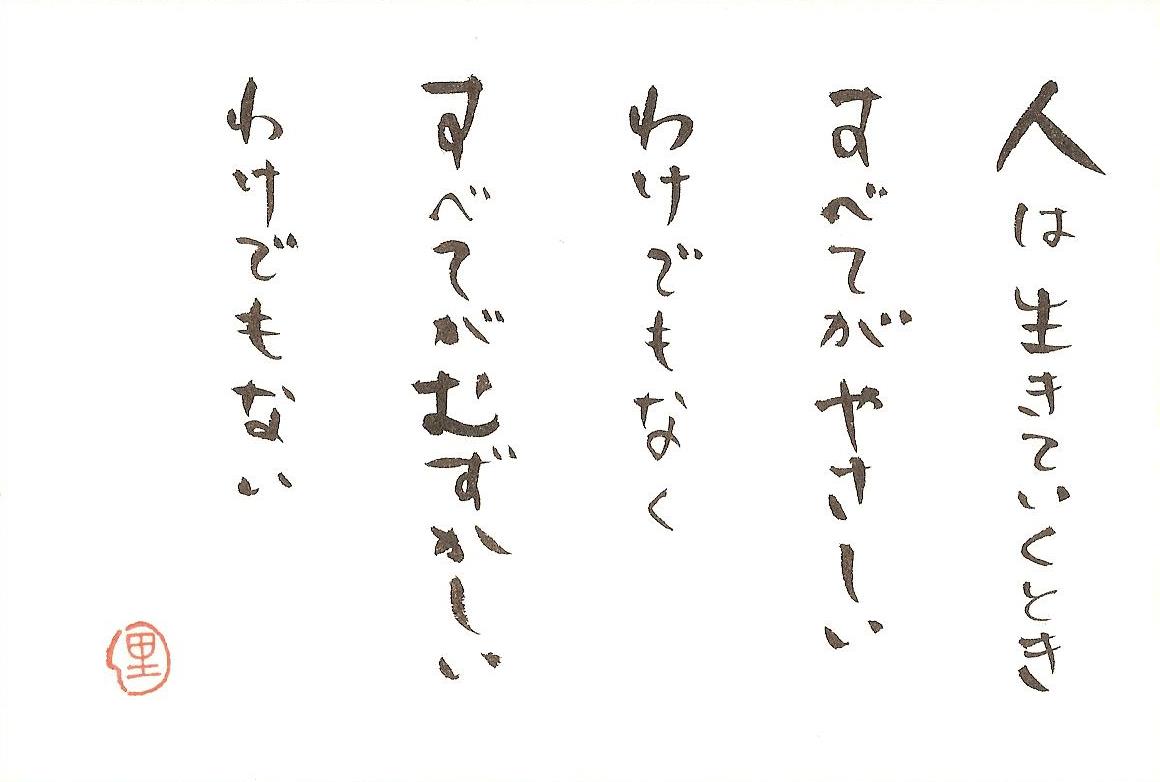 人は生きていくとき
すべてがやさしい
わけでもなく
すべてがむずかしい
わけでもない
里